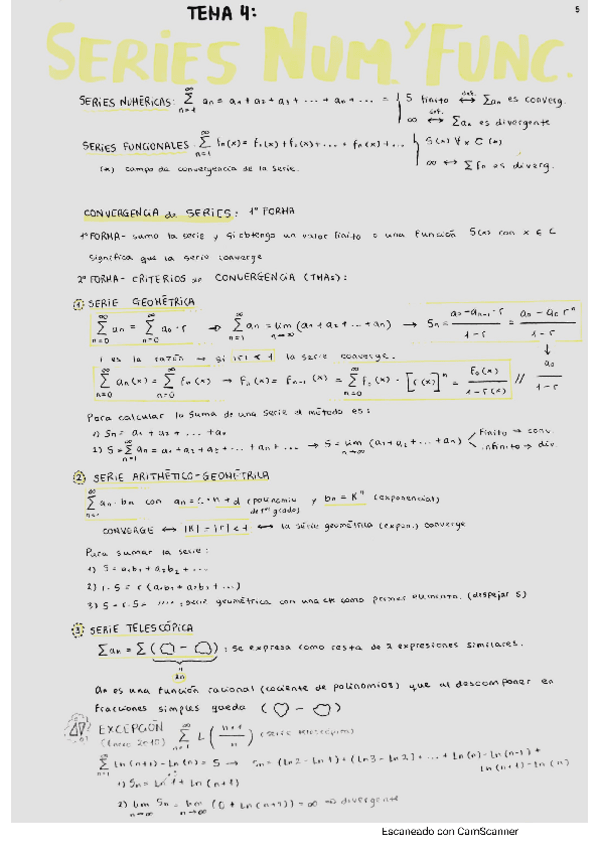 TEMA 4:
5
SERIES NUM. Y FUNC.
SERIES NUMÉRICAS: ∞ Σ n=1 an = a1 + a2 + a3 + ... + an + ... = { S finito ⟷ def. Σan es converg.
∞ ⟷ def. Σan es divergente
SERIES FUNCIONALES. ∞ Σ n=1 fn(x) = f1(x) + f2(x) + ... + fn(x) + ... { S(x) ∀x C (*)
∞ ⟷ Σ fn es diverg.
(*) campo de convergencia de la serie.
CONVERGENCIA de SERIES: 1ª FORMA
1ª FORMA- sumo la serie y si obtengo un valor finito o una función S(x) con x ∈ C
significa que la serie converge
2ª FORMA- CRITERIOS de CONVERGENCIA (TMAs):
1 SERIE GEOMÉTRICA
∞ Σ n=0 an = ∞ Σ n=0 a0 · r ⇒ ∞ Σ n=1 an = lim n→∞ (a1 + a2 + ... + an) → Sn = (a0 - an-1 · r)/(1 - r) = (a0 - a0 r^n)/(1 - r)
r es la razón → si |r| < 1 la serie converge. ↓ a0/(1 - r)
∞ Σ n=0 an(x) = ∞ Σ n=0 fn(x) → Fn(x) = Fn-1(x) = ∞ Σ n=0 f0(x) · [r(x)]^n = F0(x)/(1 - r(x)) //
Para calcular la suma de una serie el método es:
1) Sn = a1 + a2 + ... + an
2) S = ∞ Σ n=1 an = a1 + a2 + a3 + ... + an + ... → S = lim n→∞ (a1 + a2 + ... + an) < Finito → conv.
infinito → div.
2 SERIE ARITMÉTICO-GEOMÉTRICA
∞ Σ n=1 an · bn con an = c · n + d (polinomio de 1er grado) y bn = K^n (exponencial)
CONVERGE ⟷ |K| = |r| < 1 ⟷ la serie geométrica (expon.) converge
Para sumar la serie:
1) S = a1b1 + a2b2 + ...
2) r · S = r (a1b1 + a2b2 + ...)
3) S - r · S = ... : serie geométrica con una cte como primer elemento. (despejar S)
3 SERIE TELESCÓPICA
Σ an = Σ ( - ) : se expresa como resta de 2 expresiones similares.
an
an es una función racional (cociente de polinomios) que al descomponer en
fracciones simples queda ( - )
EXCEPCIÓN ∞ Σ n=1 L ( (n+1)/n ) (serie telescópica)
(Enero 2010)
∞ Σ n=1 ln(n+1) - ln(n) = S → Sn = (ln2 - ln1) + (ln3 - ln2) + ... + ln(n) - ln(n-1) +
ln(n+1) - ln(n)
1) Sn = ln 1 + ln(n+1)
2) lim n→∞ Sn = lim n→∞ (0 + ln(n+1)) = ∞ ⇒ divergente
Escaneado con CamScanner